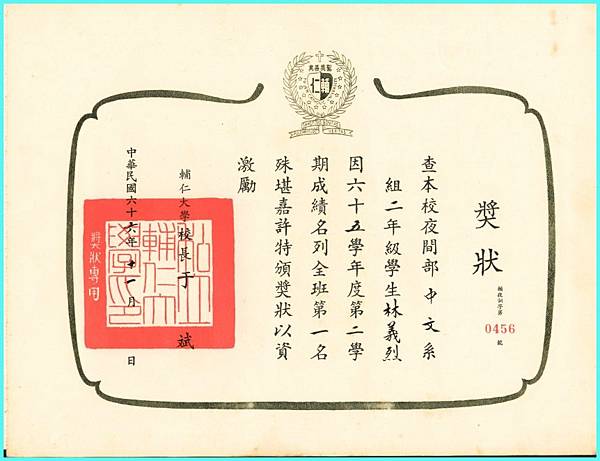 聖美善真
輔仁
獎狀
輔夜訓字第
0456
號
查本校夜間部中文系
組二年級學生林義烈
因六十五學年度第二學
期成績名列全班第一名
殊堪嘉許特頒獎狀以資
激勵
輔仁大學校長于斌
中華民國六十六年十一月 日
獎狀專用